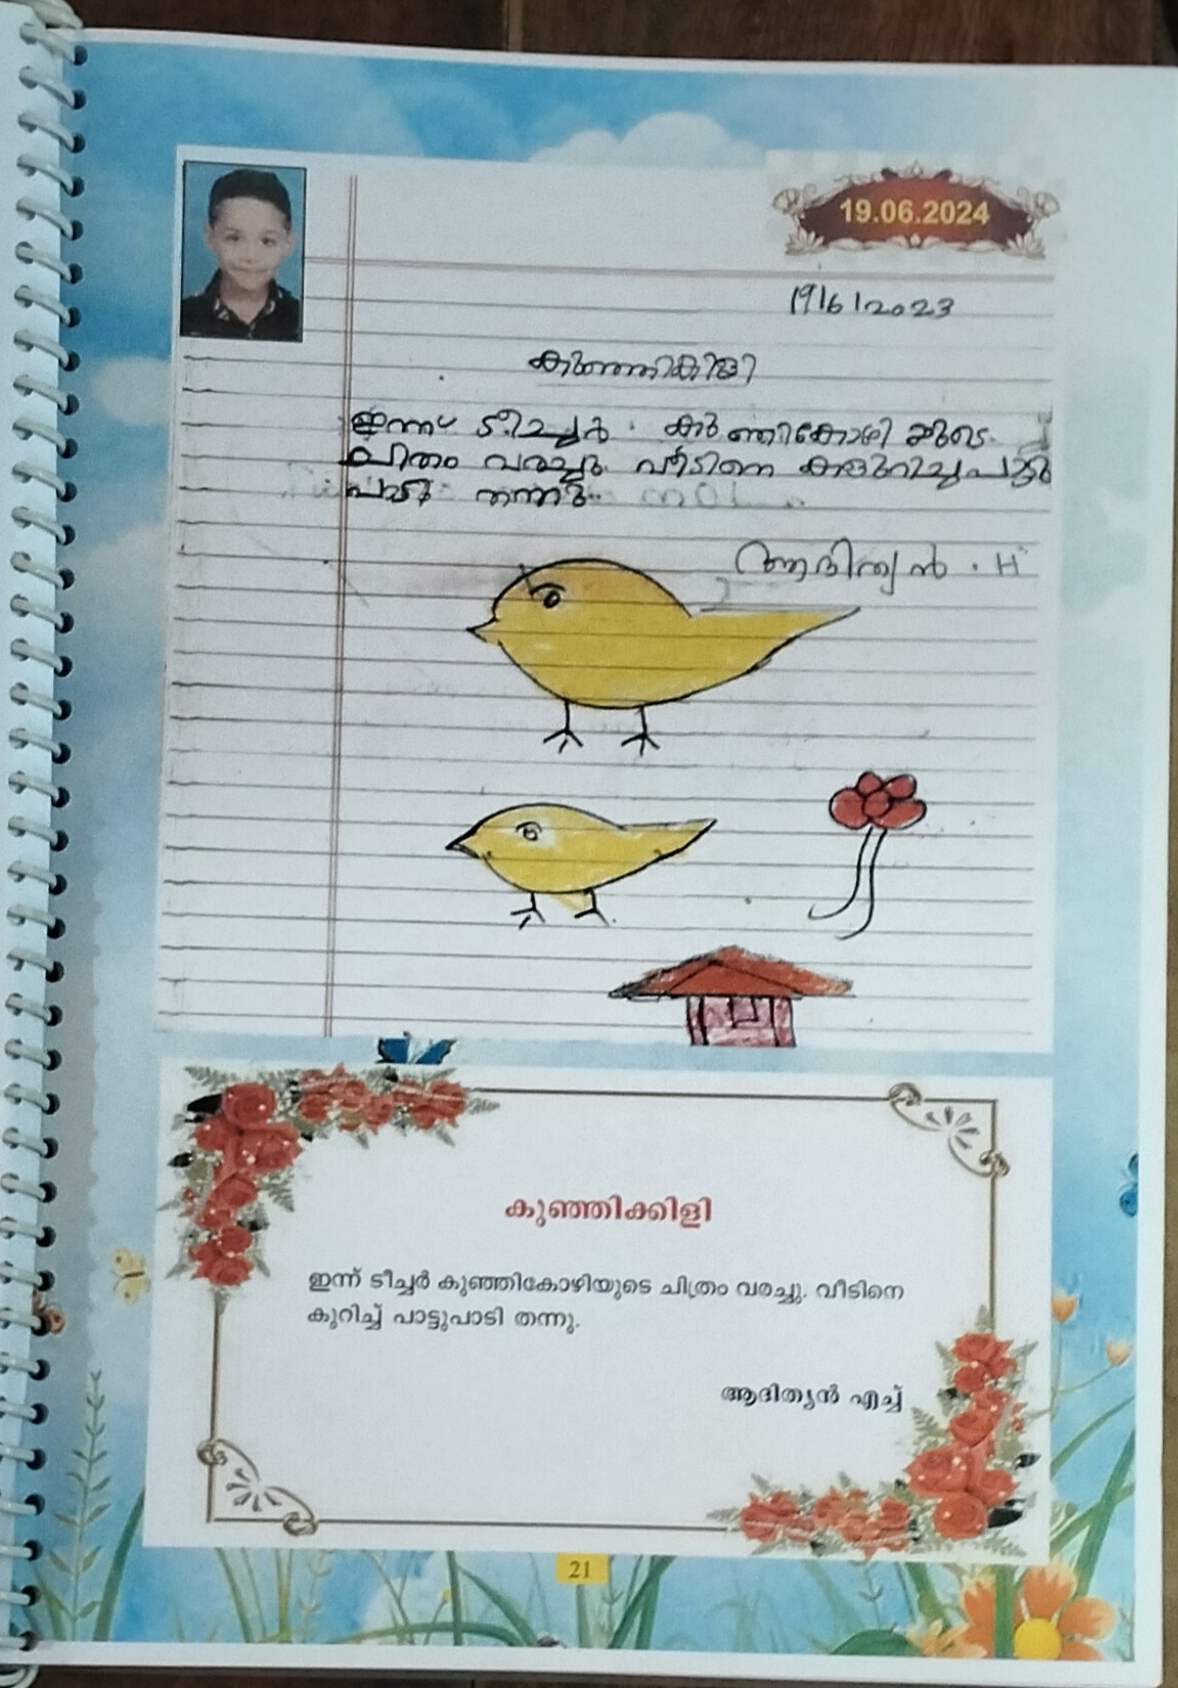 19.06.2024
19/6/2023
കുഞ്ഞികിളി
ഇന്ന് ടീച്ചർ കുഞ്ഞികോഴിയുടെ
ചിത്രം വരച്ചു. വീടിനെ കുറിച്ച് പാട്ടു
പാടി തന്നു.
ആദിത്യൻ . H
കുഞ്ഞിക്കിളി
ഇന്ന് ടീച്ചർ കുഞ്ഞികോഴിയുടെ ചിത്രം വരച്ചു. വീടിനെ
കുറിച്ച് പാട്ടുപാടി തന്നു.
ആദിത്യൻ എച്ച്
21